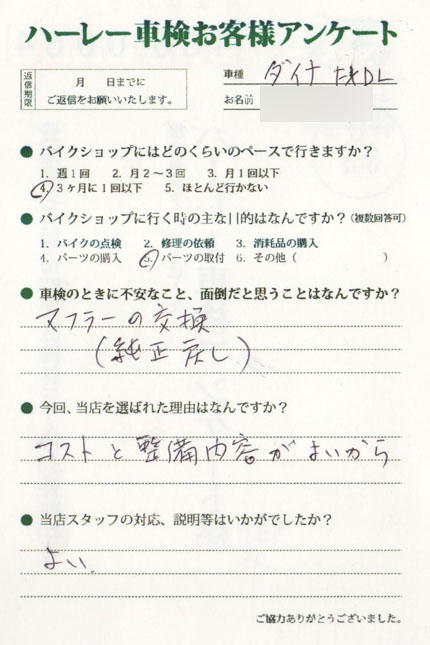 ハーレー車検お客様アンケート
返信期限
月　日までに
ご返信をお願いいたします。
車種 ダイナ FXDL
お名前
● バイクショップにはどのくらいのペースで行きますか？
1. 週1回　2. 月2〜3回　3. 月1回以下
4. 3ヶ月に1回以下　5. ほとんど行かない
● バイクショップに行く時の主な目的はなんですか？（複数回答可）
1. バイクの点検　2. 修理の依頼　3. 消耗品の購入
4. パーツの購入　5. パーツの取付　6. その他（　　　）
● 車検のときに不安なこと、面倒だと思うことはなんですか？
マフラーの交換
（純正戻し）
● 今回、当店を選ばれた理由はなんですか？
コストと整備内容がよいから
● 当店スタッフの対応、説明等はいかがでしたか？
よい。
ご協力ありがとうございました。